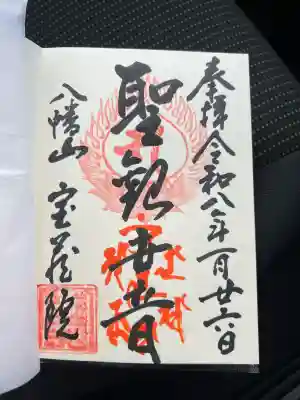 奉拝 令和八年一月廿六日
聖観世音
八幡山 宝蔵院